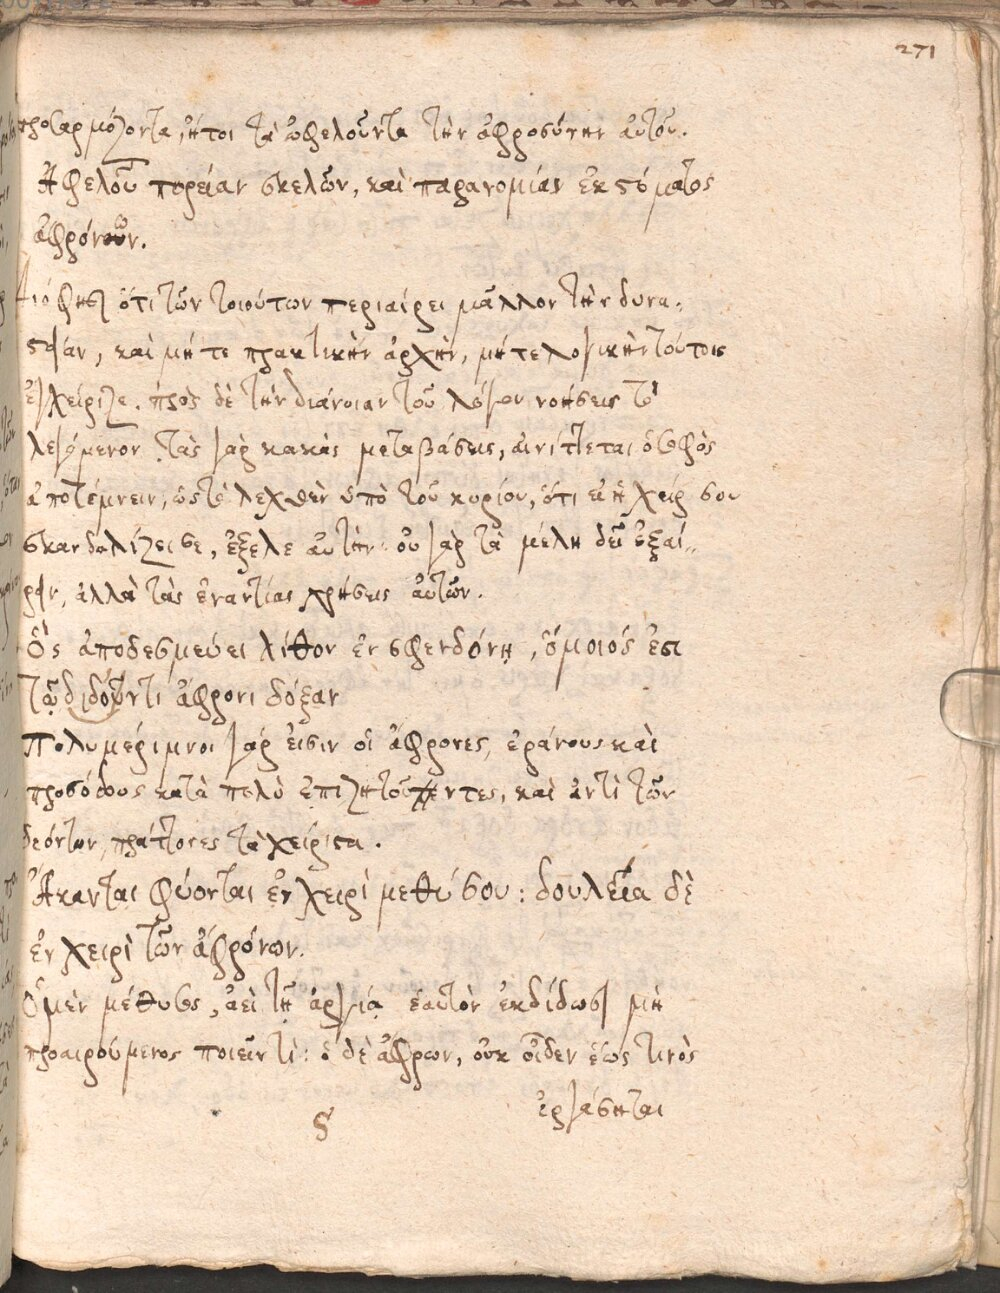 271
προσαρμόζοντα, ἤτοι τὰ ὠφελοῦντα τὴν ἀφροσύνην αὐτοῦ.
Ἀφελοῦ πορείαν σκελῶν, καὶ παρανομίαν ἐκ στόματος
ἀφρόνων.
ὅτι τῶν τοιούτων περιαίρει μᾶλλον τὴν δυνα-
στείαν, καὶ μήτε πρακτικὴν ἀρχὴν, μήτε λογικὴν τούτοις
ἐγχείριζε. πρὸς δὲ τὴν διάνοιαν τοῦ λόγου νοήσεις τὸ
λεγόμενον. τὰς γὰρ κακὰς μεταβάσεις, αἰνίττεται ὁ σοφὸς
ἀποτέμνειν, ὡς τὸ λεχθὲν ὑπὸ τοῦ κυρίου, ὅτι εἰ ἡ χείρ σου
σκανδαλίζει σε, ἔξελε αὐτήν· οὐ γὰρ τὰ μέλη δεῖ ἐξαί-
ρειν, ἀλλὰ τὰς ἐναντίας χρήσεις αὐτῶν.
Ὃς ἀποδεσμεύει λίθον ἐν σφενδόνῃ, ὅμοιός ἐστι
τῷ διδόντι ἄφρονι δόξαν
Πολυμέριμνοι γάρ εἰσιν οἱ ἄφρονες, ἐράνους καὶ
προσόδους κατὰ πολὺ ἐπιζητοῦντες, καὶ ἀντὶ τῶν
δεόντων, πράττοντες τὰ χείριστα.
Ἄκανται φύονται ἐν χειρὶ μεθύσου: δουλεία δὲ
ἐν χειρὶ τῶν ἀφρόνων.
Ὁ μὲν μέθυσος, ἀεὶ τῇ ἀργίᾳ ἑαυτὸν ἐκδίδωσι μὴ
προαιρούμενος ποιεῖν τὶ: ὁ δὲ ἄφρων, οὐκ οἶδεν ἕως τινὸς
ἐργάσηται
ς